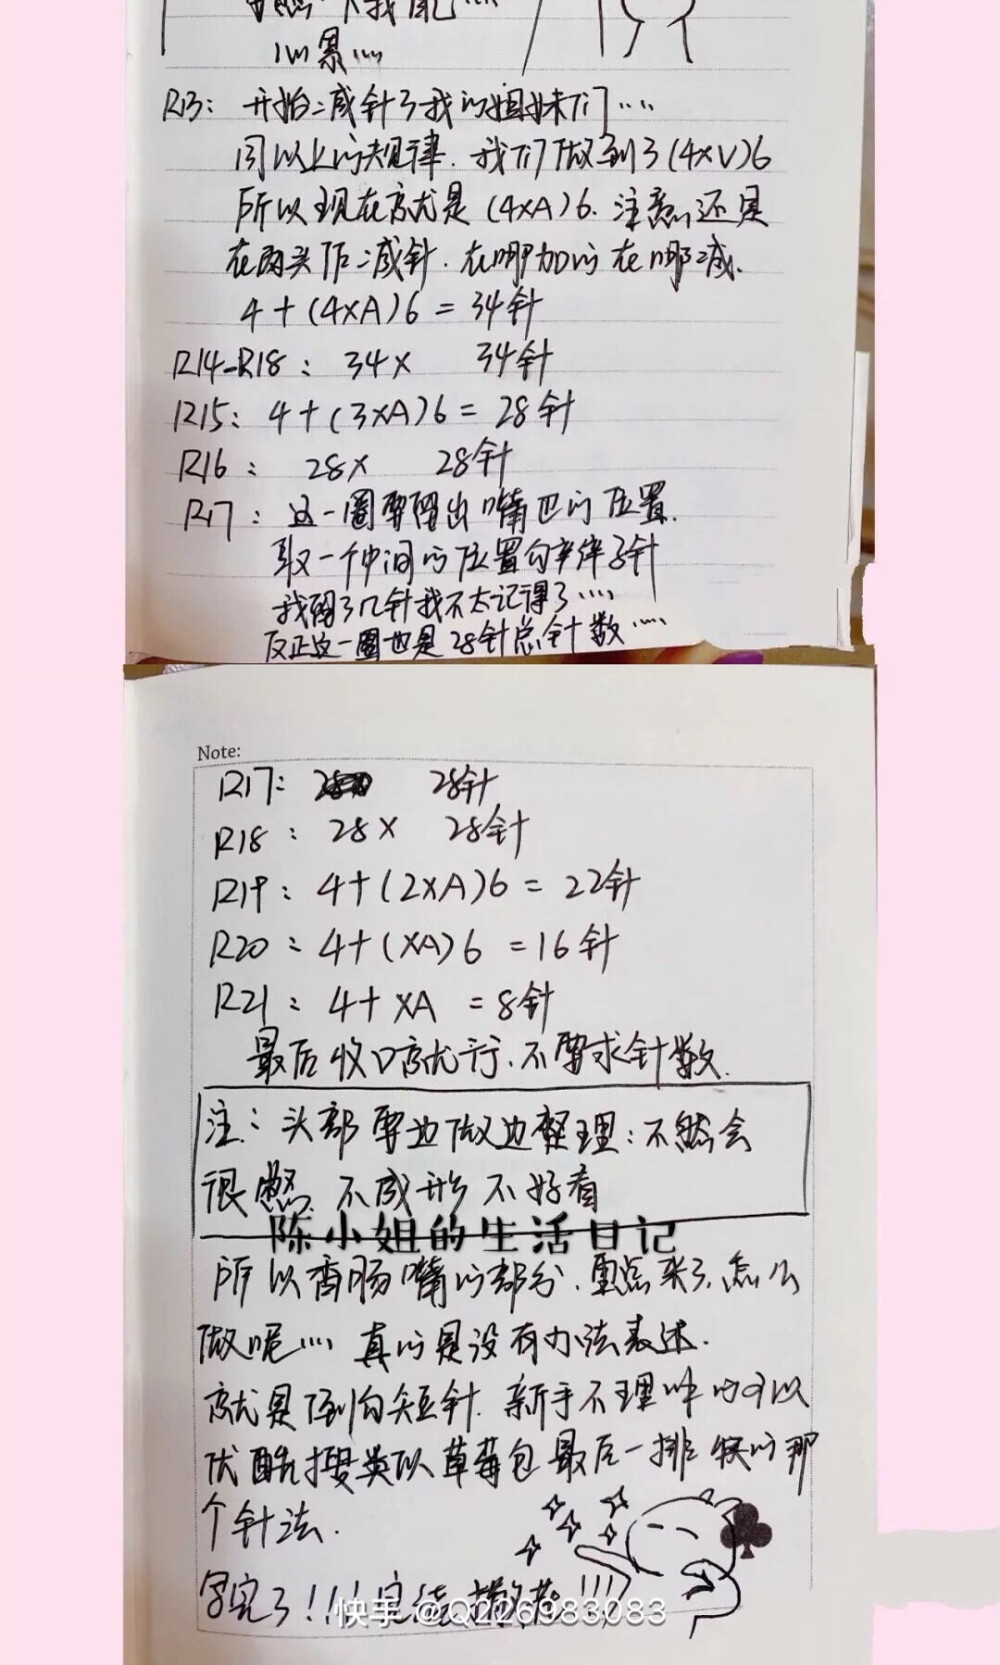 心累……
R13：开始减针了我的姐妹们……
同以上的规律.我们做到了(4XV)6
所以现在就是(4XA)6.注意还是
在两头作减针.在哪加的在哪减.
4+(4XA)6=34针
R14-R18：34X 34针
R15：4+(3XA)6=28针
R16：28X 28针
R17：这一圈要留出嘴巴的位置.
取一个中间的位置勾半针
我留了几针我不太记得了……
反正这一圈也是28针总针数……
Note:
R17： 28针
R18：28X 28针
R19：4+(2XA)6=22针
R20：4+(XA)6=16针
R21：4+XA=8针
最后收口就行.不要求针数.
注：头部要边做边整理：不然会
很憋.不成形不好看
陈小姐的生活日记
所以香肠嘴的部分.重点来了.怎么
做呢……真的是没有办法表述.
就是倒勾短针.新手不理解的可以
优酷搜类似草莓包最后一排 的那
个针法.
写完了!!!完结撒花!!!
快手 @Q226983083